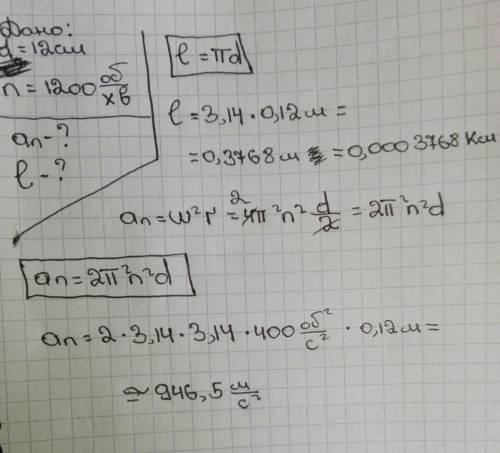 Дано:
d = 12см
n = 1200 об/хв
aₙ - ?
ℓ - ?
ℓ = πd
ℓ = 3,14 · 0,12 м =
= 0,3768 м = 0,0003768 Км
aₙ = ω²r = 4π²n² d/2 = 2π²n²d
aₙ = 2π²n²d
aₙ = 2 · 3,14 · 3,14 · 400 об²/с² · 0,12 м =
≃ 946,5 м/с²